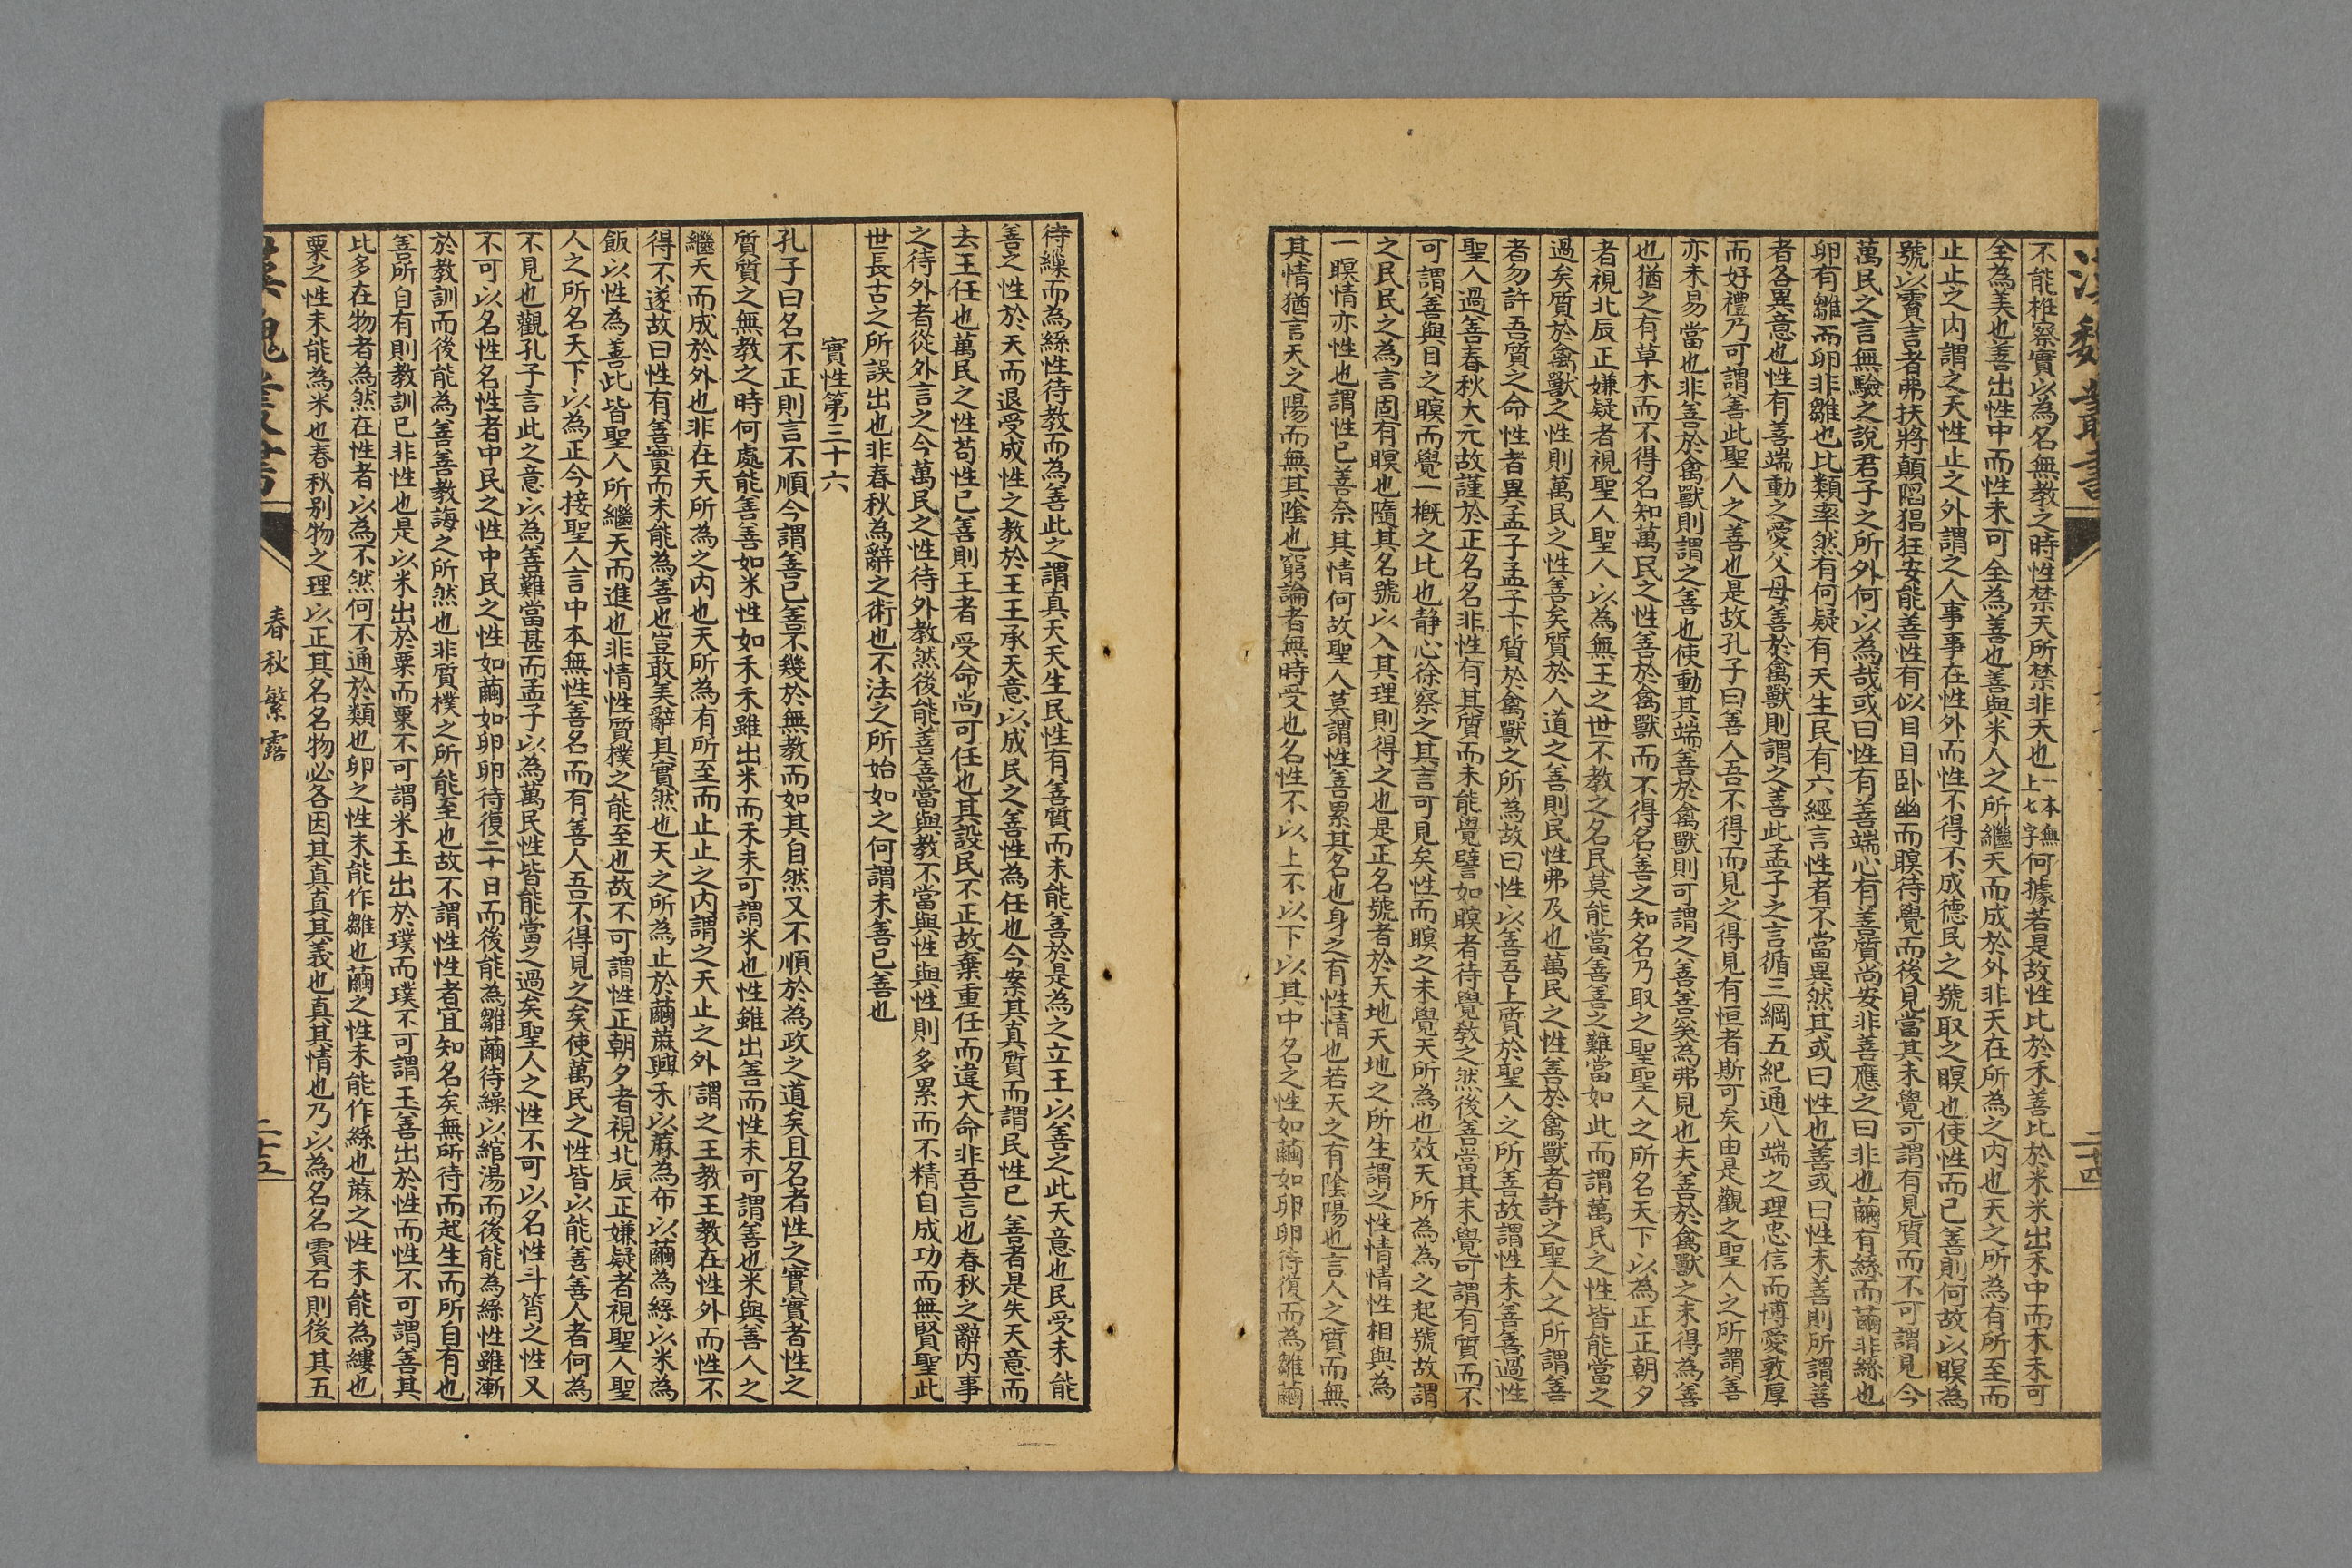 漢魏叢書
二十四
不能椎察實以為名無教之時性禁天所禁非天也一本無上七字何據若是故性比於禾善比於米米出禾中而禾未可
全為美也善出性中而性未可全為善也善與米人之所繼天而成於外非天在所為之内也天之所為有所至而
止止之内謂之天性止之外謂之人事事在性外而性不得不成德民之號取之瞑也使性而已善則何故以瞑為
號以霣言者弗扶將顛陷猖狂安能善性有似目目卧幽而瞑待覺而後見當其未覺可謂有見質而不可謂見今
萬民之言無驗之說君子之所外何以為哉或曰性有善端心有善質尚安非善應之曰非也繭有絲而繭非絲也
卵有雛而卵非雛也比類率然有何疑有天生民有六經言性者不當異然其或曰性也善或曰性未善則所謂善
者各異意也性有善端動之愛父母善於禽獸則謂之善此孟子之言循三綱五紀通八端之理忠信而博愛敦厚
而好禮乃可謂善此聖人之善也是故孔子曰善人吾不得而見之得見有恒者斯可矣由是觀之聖人之所謂善
亦未易當也非善於禽獸則謂之善也使動其端善於禽獸則可謂之善善奚為弗見也夫善於禽獸之未得為善
也猶之有草木而不得名知萬民之性善於禽獸而不得名善之知名乃取之聖聖人之所名天下以為正正朝夕
者視北辰正嫌疑者視聖人聖人以為無王之世不教之名民莫能當善善之難當如此而謂萬民之性皆能當之
過矣質於禽獸之性則萬民之性善矣質於人道之善則民性弗及也萬民之性善於禽獸者許之聖人之所謂善
者勿許吾質之命性者異孟子孟子下質於禽獸之所為故曰性以善吾上質於聖人之所善故謂性未善善過性
聖人過善春秋大元故謹於正名名非性有其質而未能覺譬如瞑者待覺教之然後善當其未覺可謂有質而不
可謂善與目之瞑而覺一概之比也静心徐察之其言可見矣性而瞑之未覺天所為也效天所為為之起號故謂
之民民之為言固有瞑也隨其名號以入其理則得之也是正名號者於天地天地之所生謂之性情情性相與為
一瞑情亦性也謂性已善奈其情何故聖人莫謂性善累其名也身之有性情也若天之有陰陽也言人之質而無
其情猶言天之陽而無其陰也窮論者無時受也名性不以上不以下以其中名之性如繭如卵卵待復而為雛繭
待繅而為絲性待教而為善此之謂真天天生民性有善質而未能善於是為之立王以善之此天意也民受未能
善之性於天而退受成性之教於王王承天意以成民之善性為任也今案其真質而謂民性已善者是失天意而
去王任也萬民之性苟性已善則王者受命尚可任也其設民不正故棄重任而違大命非吾言也春秋之辭内事
之待外者從外言之今萬民之性待外教然後能善善當與教不當與性與性則多累而不精自成功而無賢聖此
世長古之所誤出也非春秋為辭之術也不法之所始如之何謂未善已善也
實性第三十六
孔子曰名不正則言不順今謂善已善不幾於無教而如其自然又不順於為政之道矣且名者性之實實者性之
質質之無教之時何處能善善如米性如禾禾雖出米而禾未可謂米也性雖出善而性未可謂善也米與善人之
繼天而成於外也非在天所為之内也天所為有所至而止止之内謂之天止之外謂之王教王教在性外而性不
得不遂故曰性有善實而未能為善也豈敢美辭其實然也天之所為止於繭蔴興禾以蔴為布以繭為絲以米為
飯以性為善此皆聖人所繼天而進也非情性質樸之能至也故不可謂性正朝夕者視北辰正嫌疑者視聖人聖
人之所名天下以為正今接聖人言中本無性善名而有善人吾不得見之矣使萬民之性皆以能善善人者何為
不見也觀孔子言此之意以為善難當甚而孟子以為萬民性皆能當之過矣聖人之性不可以名性斗筲之性又
不可以名性名性者中民之性中民之性如繭如卵卵待復二十日而後能為雛繭待繰以綰湯而後能為絲性雖漸
於教訓而後能為善善教誨之所然也非質樸之所能至也故不謂性性者宜知名矣無所待而起生而所自有也
善所自有則教訓已非性也是以米出於粟而粟不可謂米玉出於璞而璞不可謂玉善出於性而性不可謂善其
比多在物者為然在性者以為不然何不通於類也卵之性未能作雛也繭之性未能作絲也蔴之性未能為縷也
粟之性未能為米也春秋别物之理以正其名名物必各因其真真其義也真其情也乃以為名名霣石則後其五
漢魏叢書
春秋繁露
二十五